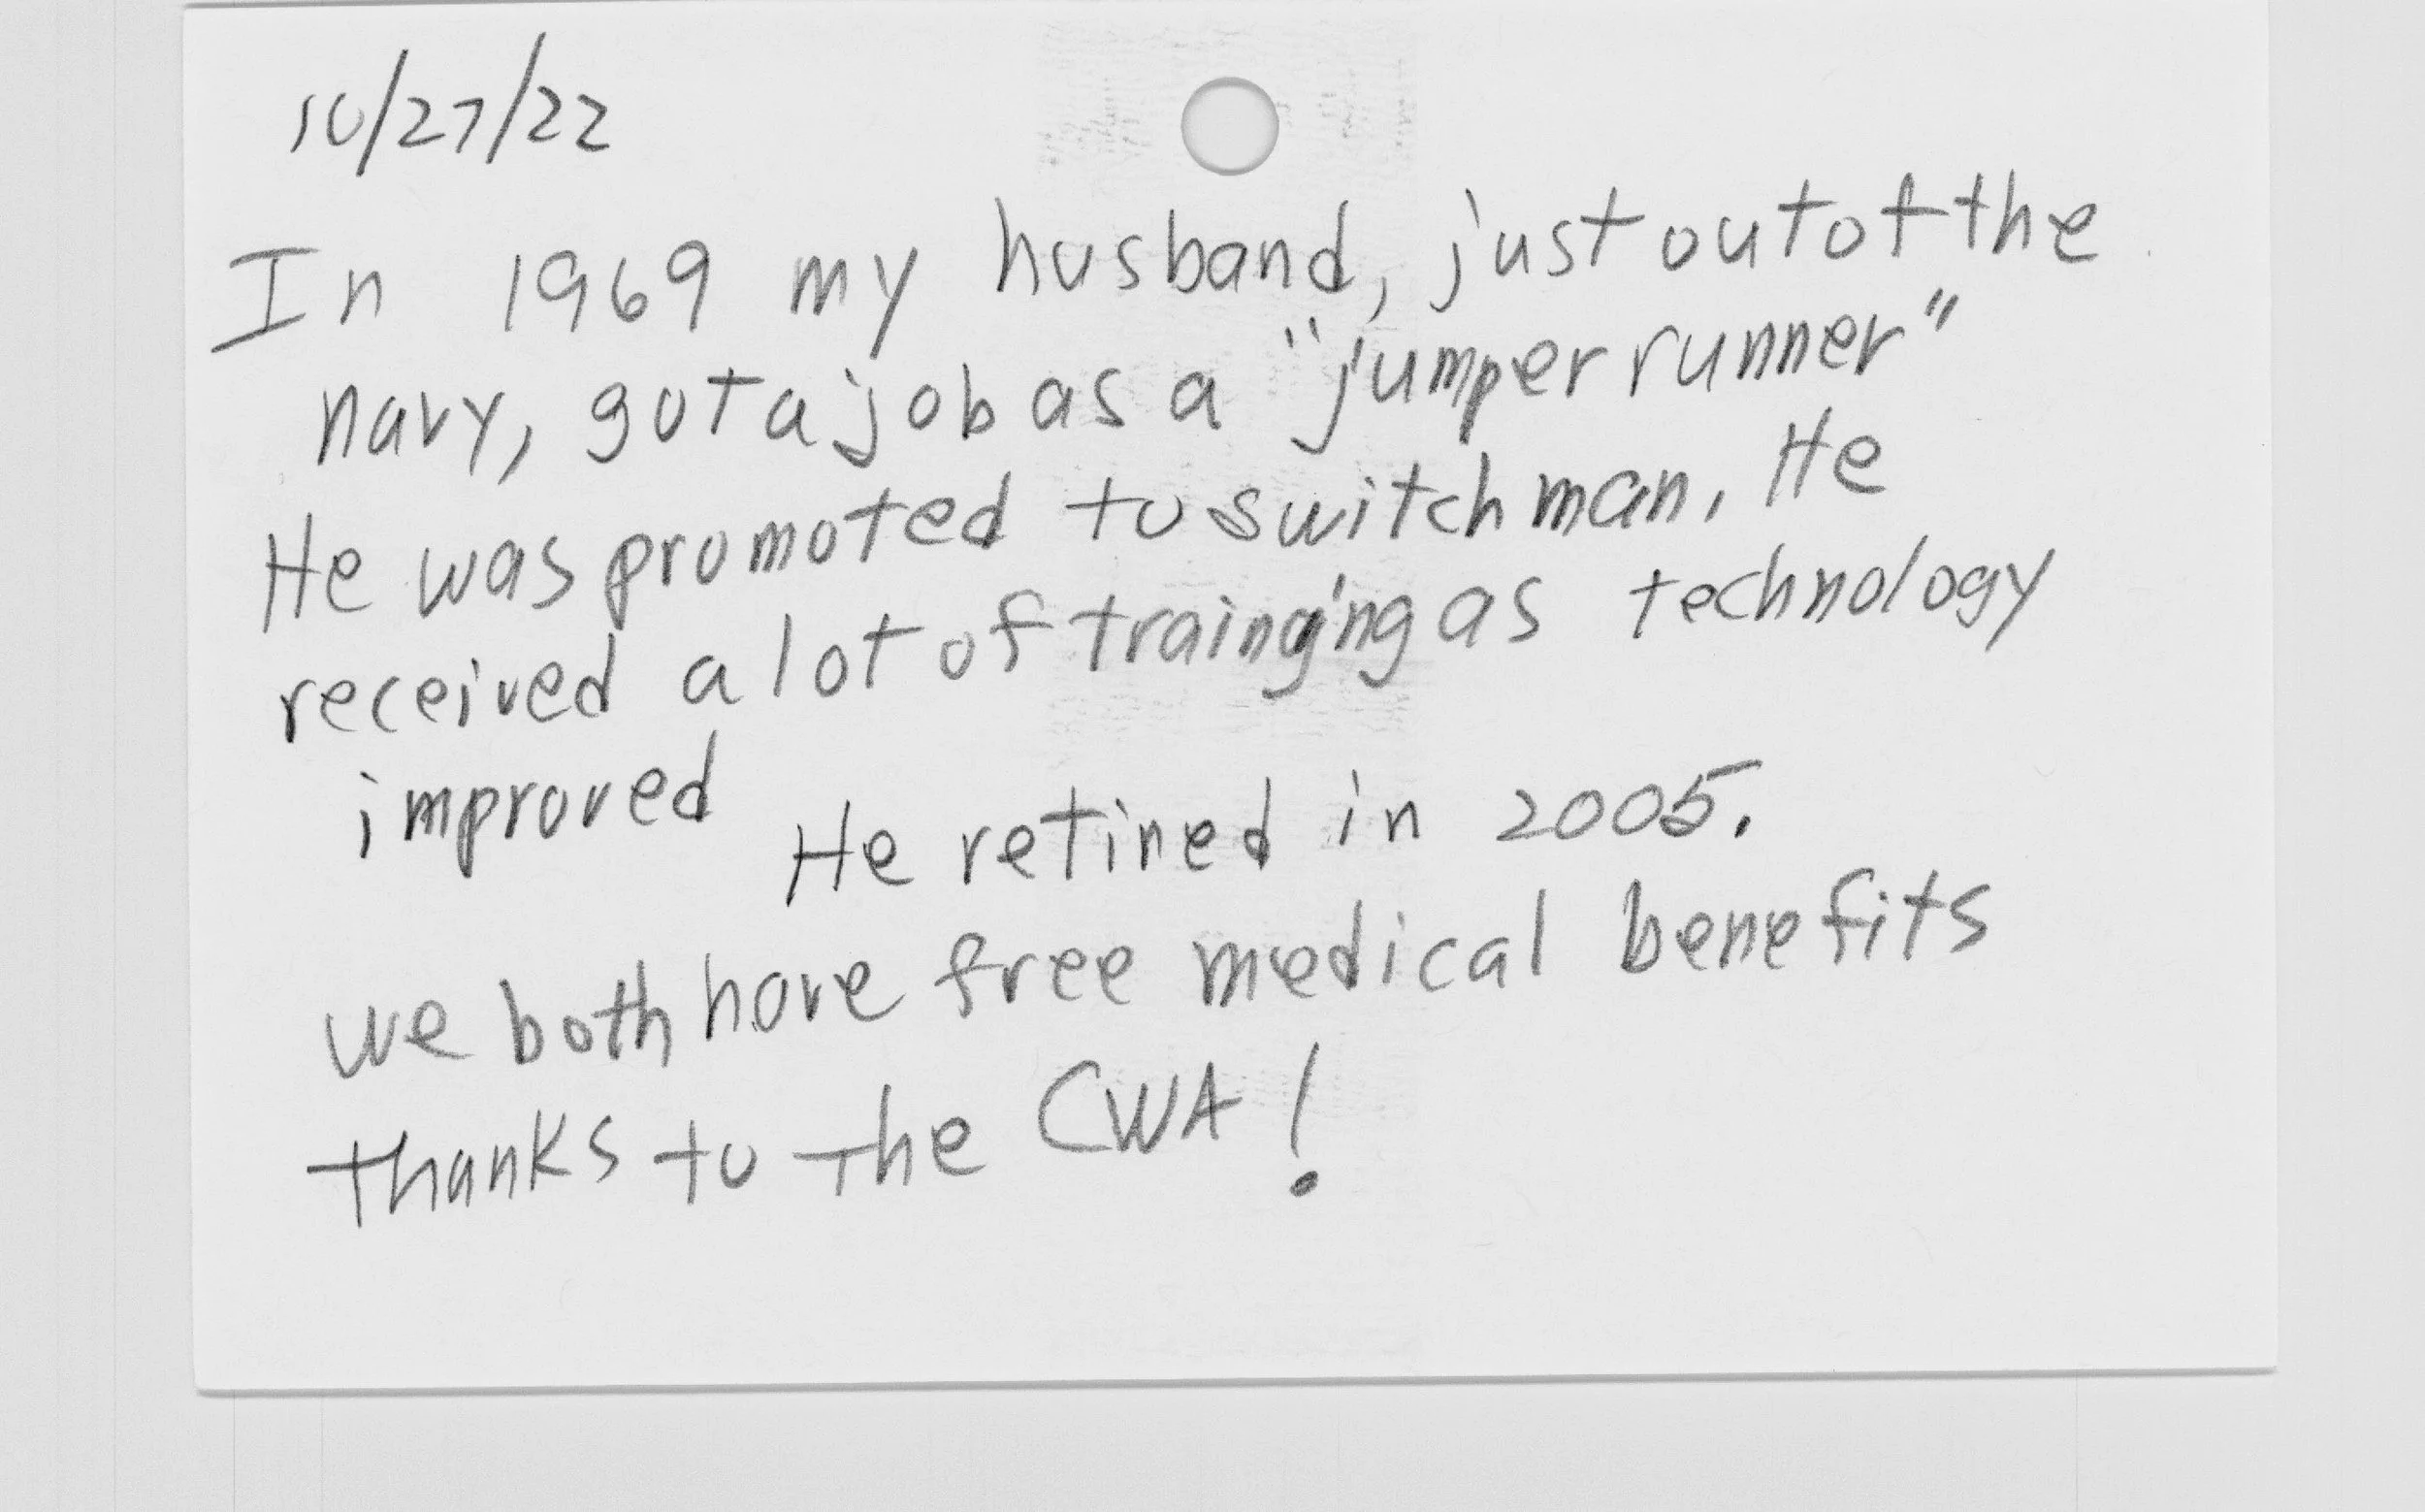 10/27/22
In 1969 my husband, just out of the
navy, got a job as a "jumper runner"
He was promoted to switchman. He
received a lot of trainging as technology
improved He retired in 2005.
we both have free medical benefits
thanks to the CWA!